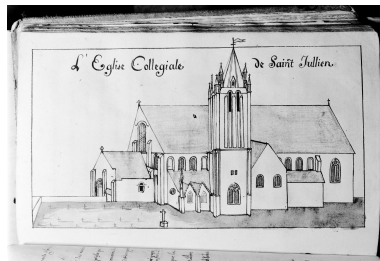 L'Eglise Collegiale de Saint Jullien.